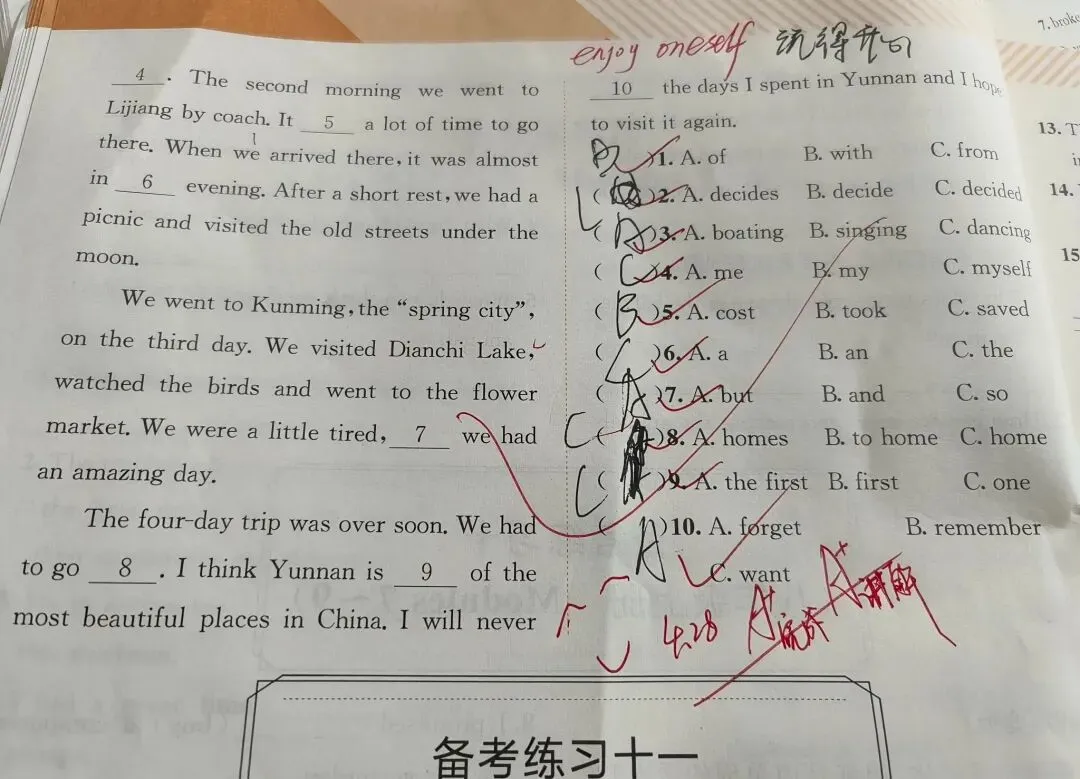 enjoy oneself 玩得开心
4 . The second morning we went to
Lijiang by coach. It 5 a lot of time to go
there. When we arrived there, it was almost
in 6 evening. After a short rest, we had a
picnic and visited the old streets under the
moon.
We went to Kunming, the “spring city”,
on the third day. We visited Dianchi Lake,
watched the birds and went to the flower
market. We were a little tired, 7 we had
an amazing day.
The four-day trip was over soon. We had
to go 8 . I think Yunnan is 9 of the
most beautiful places in China. I will never
10 the days I spent in Yunnan and I hope
to visit it again.
B )1. A. of B. with C. from
C ( )2. A. decides B. decide C. decided
( A )3. A. boating B. singing C. dancing
( C )4. A. me B. my C. myself
( B )5. A. cost B. took C. saved
( C )6. A. a B. an C. the
( A )7. A. but B. and C. so
C ( )8. A. homes B. to home C. home
C ( )9. A. the first B. first C. one
( A )10. A. forget B. remember
C. want
4.28 A+ A+
备考练习十一
7. brok
13. T
14.
15